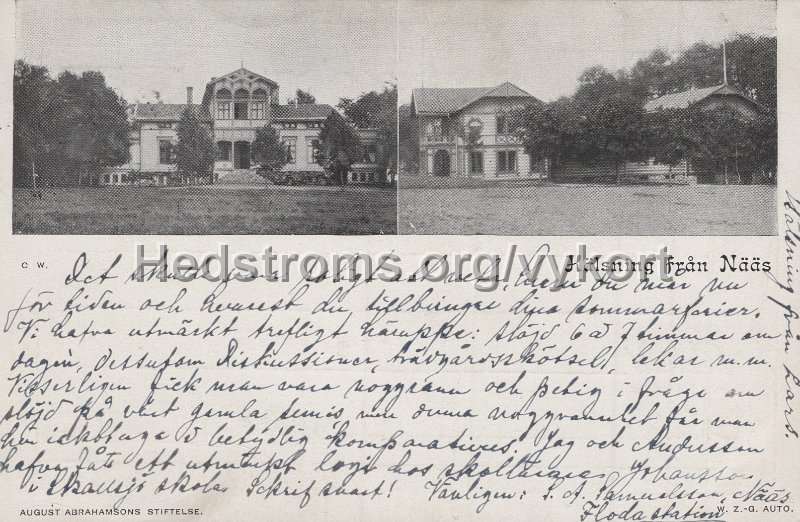 C W.
Hedstroms.org/vykort
Hälsning från Nääs
Det skulle vara roligt att veta, huru du mår nu
för tiden och hvarest du tillbringar dina sommarferier.
Vi hafva utmärkt trefligt häruppe: slöjd 6 à 7 timmar om
dagen, dessutom diskussioner, trädgårdsskötsel, lekar m. m.
Visserligen fick man vara noggrann och petig i fråga om
slöjd på vårt gamla semis, men denna noggrannhet får man
här i betydlig komparativus. Jag och Andersson
hafva fått ett utmärkt logis hos skollärare Johansson
i skola. Skrif snart! Vänligen: J. A. Samuelsson, Nääs
Floda station
Hälsning från Lars
AUGUST ABRAHAMSONS STIFTELSE.
W. Z.-G. AUTO.